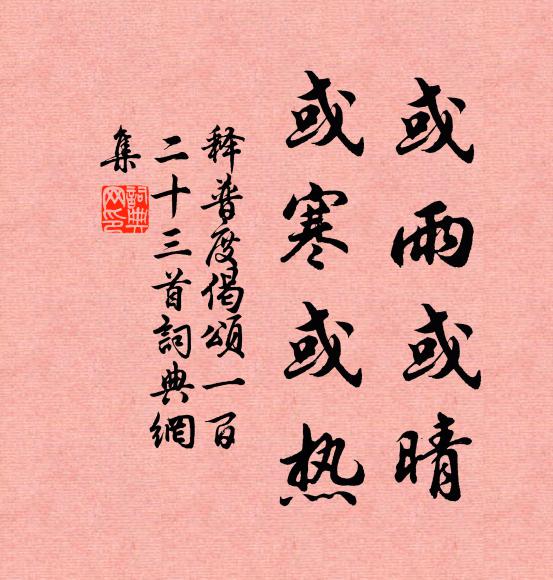 或雨或晴
或寒或热
释普度偈頌一百
二十三首詞典網
集
詞典
网印